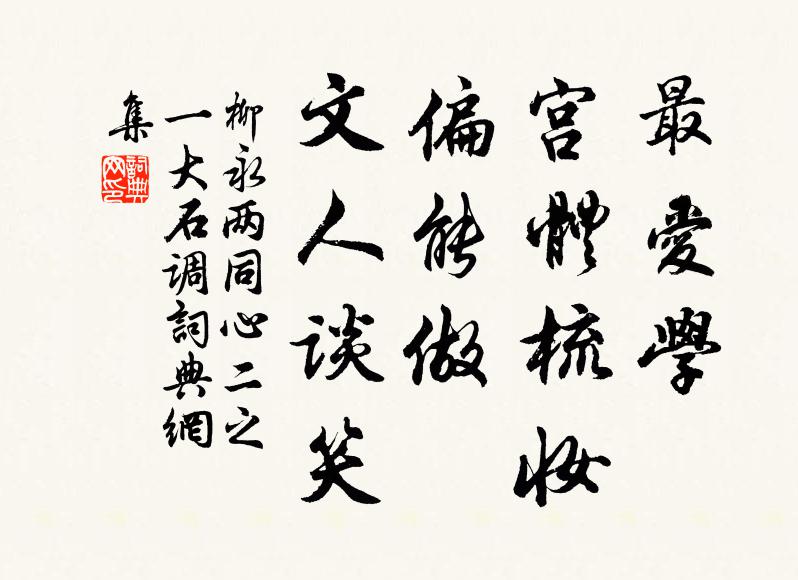 最愛學
宫體梳妆
偏能做
文人谈笑
柳永两同心二之
一大石调詞典網
集
詞典
网印